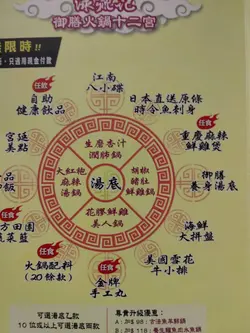 御膳火鍋十二宮
限時!!
只適用現金付款
江南
八小碟
任飲
自助
健康飲品
日本直送原條
時令魚刺身
任食
宮廷
美點
生磨杏汁
潤肺鍋
重慶麻辣
鮮雞煲
大紅袍
麻辣
湯鍋
湯底
胡椒
豬肚
鮮雞鍋
御膳
養身湯底
任食
方田園
蔬菜籃
花膠鮮雞
美人鍋
海鮮
大拼盤
任食
火鍋配料
(20餘款)
任食
金牌
手工丸
美國雪花
牛小排
可選湯底乙款
10位或以上可選湯底兩款
專貴升級優惠: